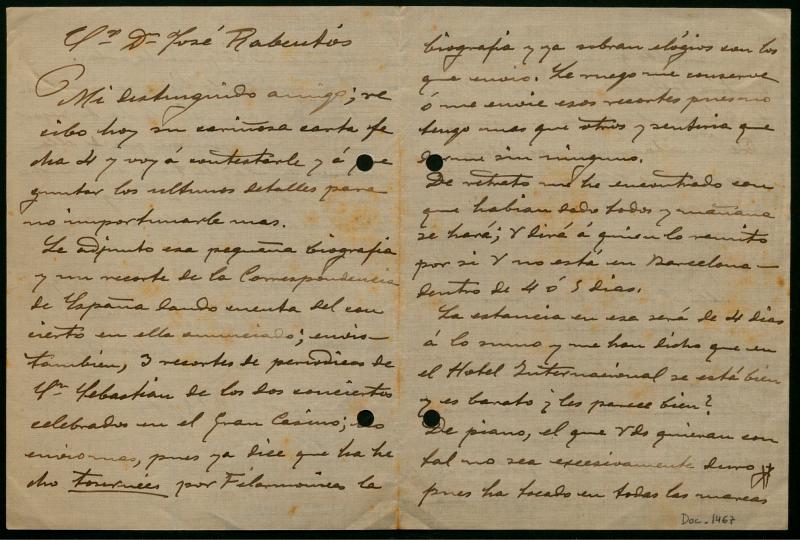 Sr. Dn José Rabentós
Mi distinguido amigo; re
cibo hoy su cariñosa carta fe
cha 4 y voy á contestarle y á pre
guntar los ultimos detalles para
no importunarle mas.
Le adjunto esa pequeña biografia
y un recorte de la Correspondencia
de España dando cuenta del con
cierto en ella anunciado; envio
tambien, 3 recortes de periodicos de
Sn Sebastián de los dos conciertos
celebrados en el Gran Casino; no
envio mas, pues ya dice que ha he
cho tournées por Filarmónicas la
biografia y ya sobran elógios con los
que envio. Le ruego me conserve
ó me envie esos recortes pues no
tengo mas que otros y sentiria que
darme sin ninguno.
De retrato me he encontrado con
que habian dado todos y mañana
se hará; V dirá á quien lo remito
por si V no está en Barcelona—
dentro de 4 ó 5 dias.
La estancia en esa será de 4 dias
á lo sumo y me han dicho que en
el Hotel Internacional se está bien
y es barato ¿les parece bien?
De piano, el que Vds quieran con
tal no sea excesivamente duro
pues ha tocado en todas las marcas
Doc. 1467